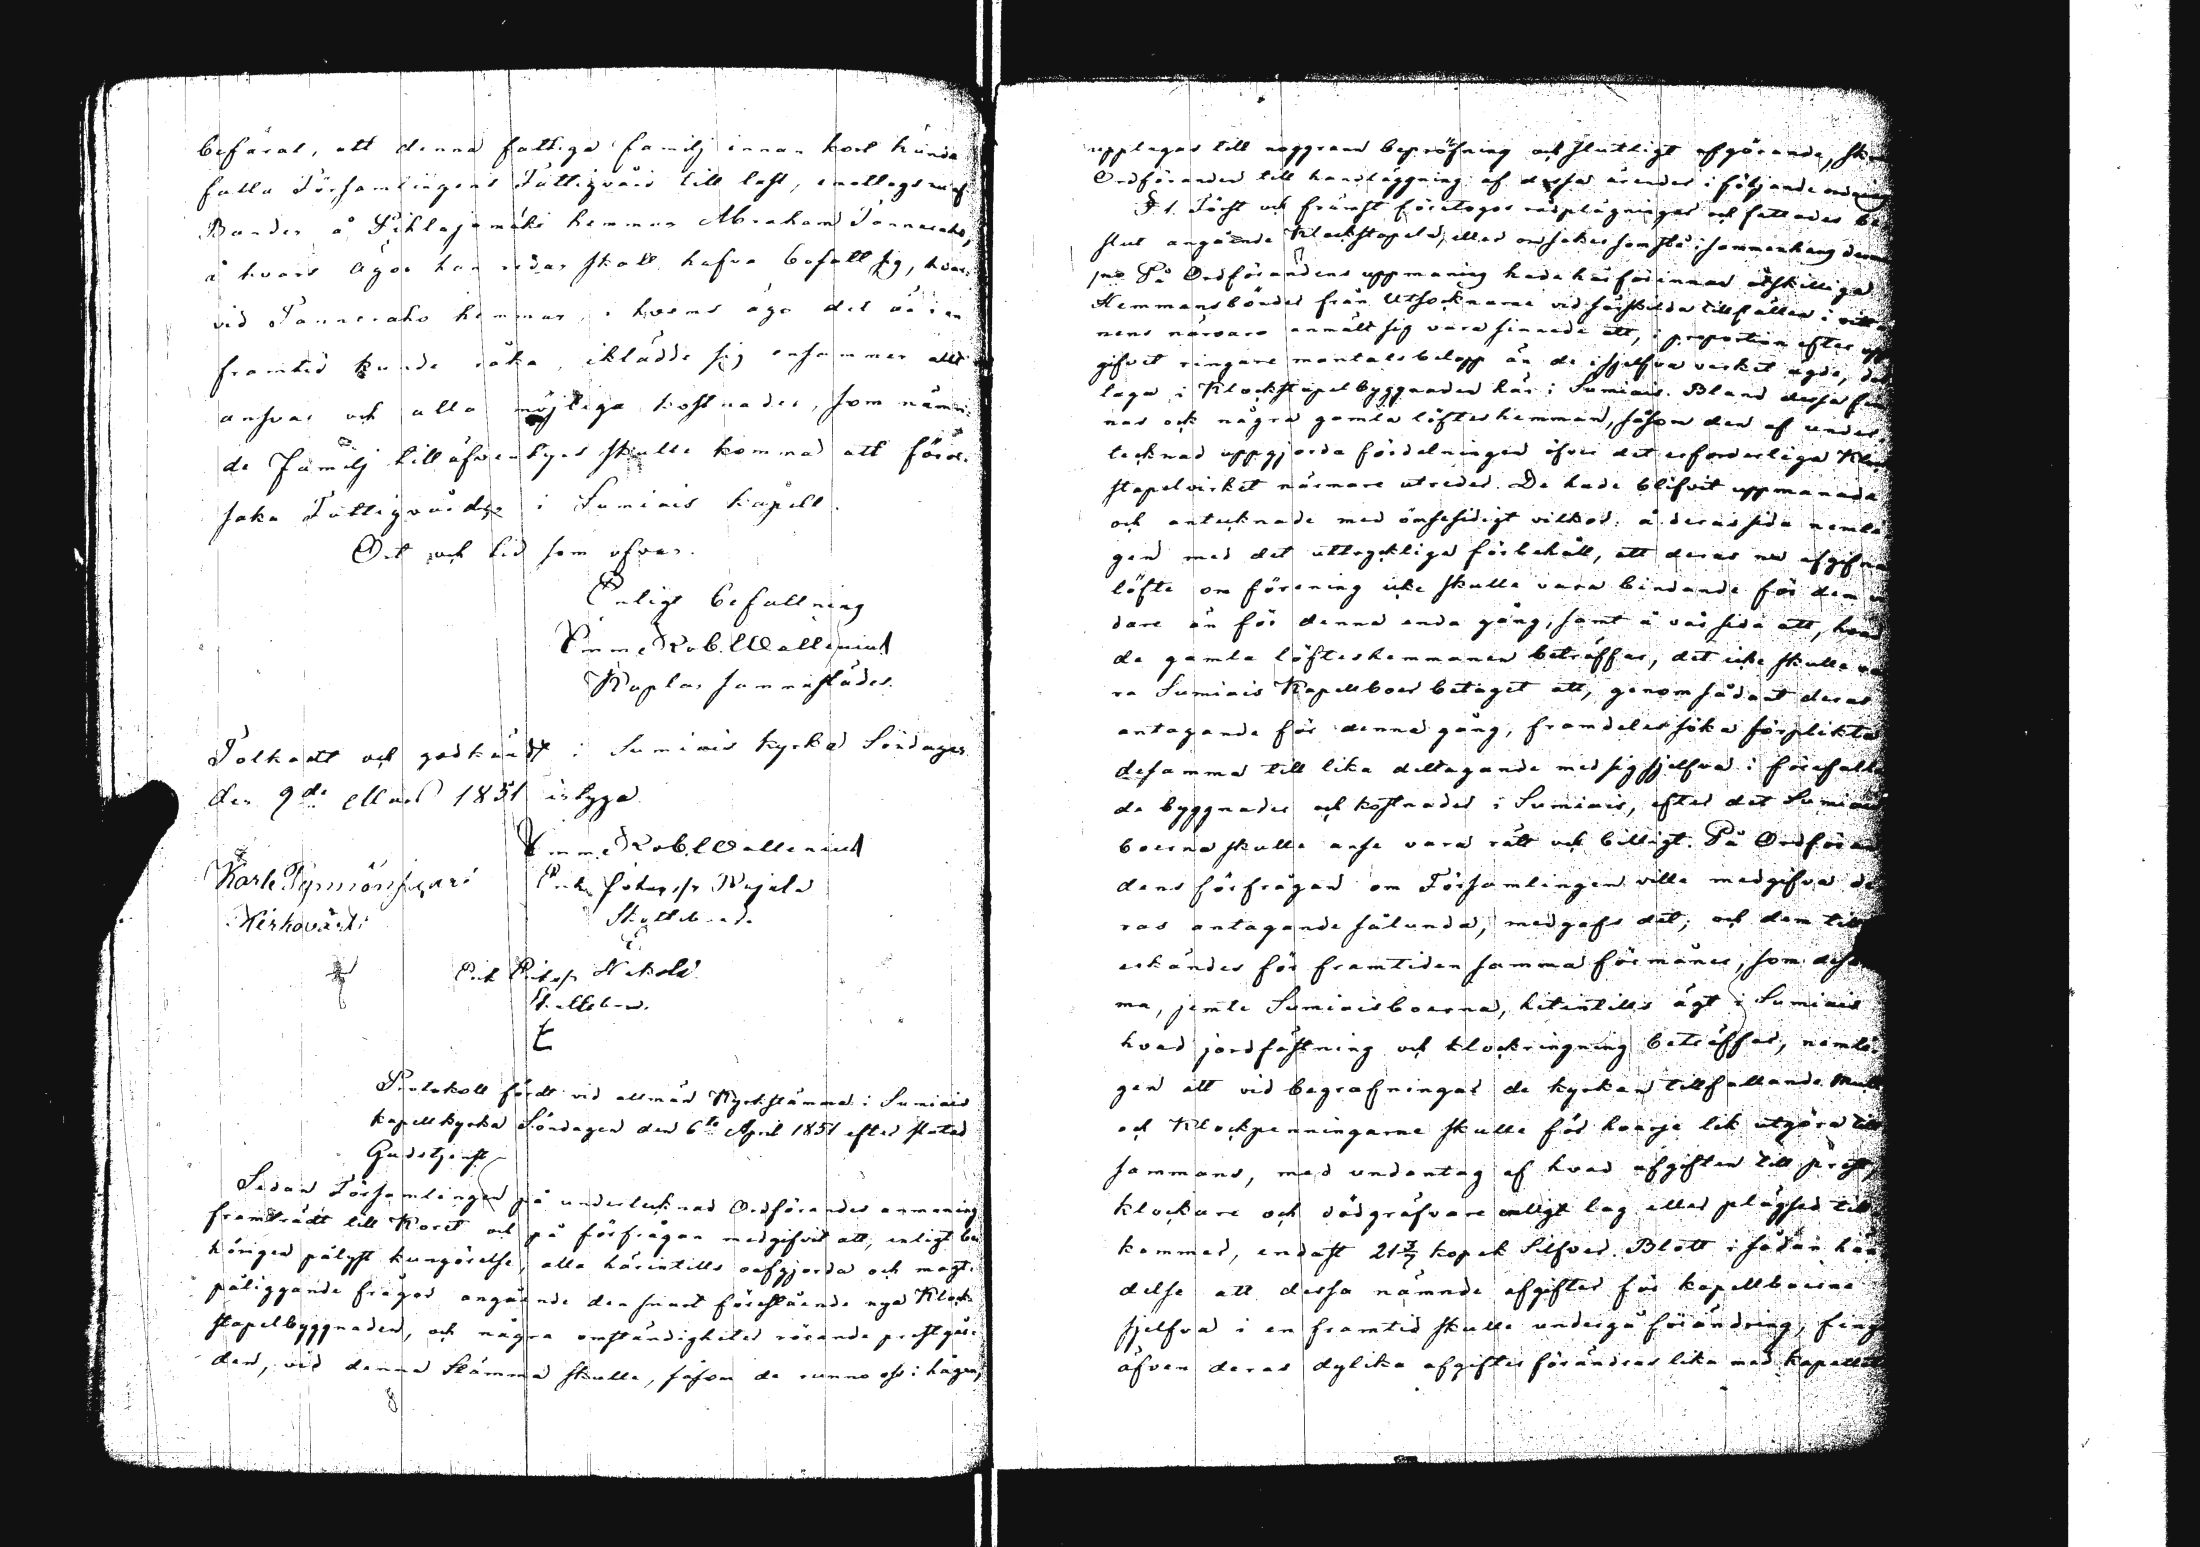 befarat, att denna fattiga familj innan kort kunde
falla Församlingens Fattigvård till last, emottogs nu af
Bonden å Pihlajamäki hemman Abraham Tanneraho,
å hvars ägor han redan skall hafva bosatt sig, hvar-
vid Tanneraho hemman, i hvems ägo det än i en
framtid kunde råka, iklädde sig ensammen allt
ansvar och alla möjliga kostnader, som nämn-
de familj tilläfventyrs skulle komma att föror-
saka Fattigvården i Sumiais kapell.
Ort och tid som ofvan.
Enligt befallning
Emme Rob. Wallenius
Kaplan sammastädes.
Tolkadt och godkändt i Sumiais kyrka Söndagen
den 9de Mars 1851 intyga
Emme Rob. Wallenius
Kirkovärti
Erik Johansson Rajala
Erik Eriksson Nikola
E
Protokoll fördt vid allmän Kyrkstämma i Sumiais
kapellkyrka Söndagen den 6te April 1851 efter slutad
Gudstjenst
Sedan Församlingen på undertecknad Ordförandes anmaning
framträdt till Koret och på förfrågan medgifvit att, enligt be-
hörigen pålyst kungörelse, alla härintills oafgjorda och magt-
påliggande frågor angående den snart förestående nya Klock-
stapelbyggnaden, och några omständigheter rörande prestgår-
den, vid denna Stämma skulle, såsom de runno oss i hågen,
upptagas till noggrann bepröfning och slutligt afgörande,
Ordföranden till handläggning af dessa ärenden i följande ordning
§ 1. Först och främst företogos rådplägningar och fattades be-
slut angående Klockstapeln, eller om saker som stå i sammanhang derm
På Ordförandens uppmaning hade härförinnan åtskilliga
Hemmansbönder från Utsocknarne vid särskilda tillfällen i vitt-
nens närvaro anmält sig vara sinnade att, i proportion efter upp-
gifvit ringare mantalsbelopp än de i sjelfva verket ägde, del-
taga i Klockstapelbyggnaden här i Sumiais. Bland dessa fin-
nas och några gamla löfteshemman, såsom den af under-
tecknad uppgjorda fördelningen öfver det erforderliga Klock-
stapelvirket närmare utreder. De hade blifvit uppmanade
och antecknade med ömsesidigt vilkor: å deras sida nemli-
gen med det uttryckliga förbehåll, att deras nu afgifna
löfte om förening icke skulle vara bindande för dem vi-
dare än för denna enda gång, samt å vår sida att, hvad
de gamla löfteshemmanen beträffar, det icke skulle va-
ra Sumiais Kapellboer betaget att, genom sådant deras
antagande för denna gång, framdeles söka förplikta
desamma till lika deltagande med sig sjelfva i förefallan-
de byggnader och kostnader i Sumiais, efter det Sumiais
boerna skulle anse vara rätt och billigt. På Ordföran-
dens förfrågan om Församlingen ville medgifva de-
ras antagande sålunda, medgafs det, och dem till-
erkändes för framtiden samma förmåner, som desam-
ma, jemte Sumiaisboerna, hitintills ägt i Sumiais
hvad jordfästning och klockringning beträffar, nemli-
gen att vid begrafningar de kyrkan tillfallande Mull
och Klockpenningarne skulle för hvarje lik utgöra till-
sammans, med undantag af hvad afgiften till prest,
klockare och dödgräfvare enligt lag eller plägsed till-
kommer, endast 21 3/7 kopek Silfver. Blott i sådan hän-
delse att dessa nämnde afgifter för kapellboerne
sjelfva i en framtid skulle undergå förändring, finge
äfven deras dylika afgifter förändras lika med kapellets